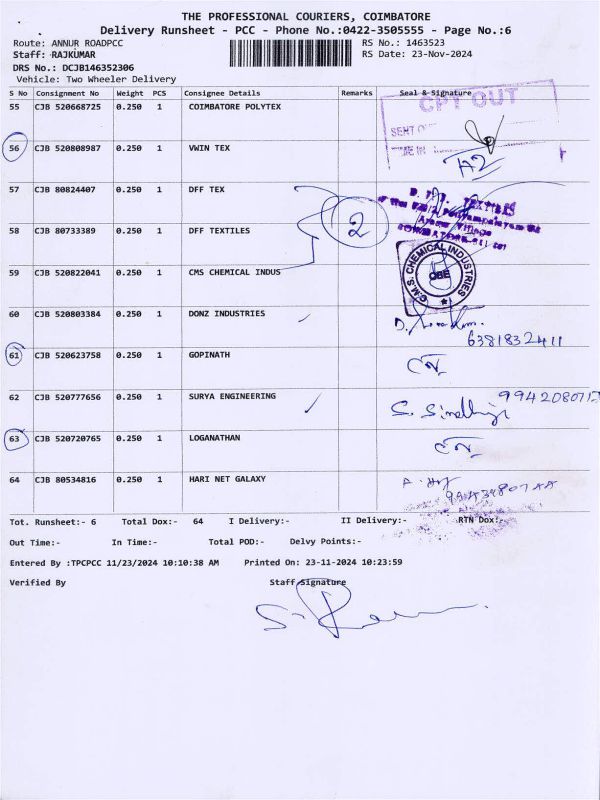 THE PROFESSIONAL COURIERS, COIMBATORE
Delivery Runsheet - PCC - Phone No.:0422-3505555 - Page No.:6
Route: ANNUR ROADPCC RS No.: 1463523
Staff: RAJKUMAR RS Date: 23-Nov-2024
DRS No.: DCJB146352306
Vehicle: Two Wheeler Delivery
S No Consignment No Weight PCS Consignee Details Remarks Seal & Signature
55 CJB 520668725 0.250 1 COIMBATORE POLYTEX
CPT OUT
SENT
TIME IN
56 CJB 520808987 0.250 1 VWIN TEX
57 CJB 80824407 0.250 1 DFF TEX
2
58 CJB 80733389 0.250 1 DFF TEXTILES
59 CJB 520822041 0.250 1 CMS CHEMICAL INDUS
C.M.S. CHEMICAL INDUSTRIES
CBE
60 CJB 520803384 0.250 1 DONZ INDUSTRIES
6381832411
61 CJB 520623758 0.250 1 GOPINATH
62 CJB 520777656 0.250 1 SURYA ENGINEERING
63 CJB 520720765 0.250 1 LOGANATHAN
64 CJB 80534816 0.250 1 HARI NET GALAXY
Tot. Runsheet:- 6 Total Dox:- 64 I Delivery:- II Delivery:- RTN Dox:-
Out Time:- In Time:- Total POD:- Delvy Points:-
Entered By :TPCPCC 11/23/2024 10:10:38 AM Printed On: 23-11-2024 10:23:59
Verified By Staff Signature